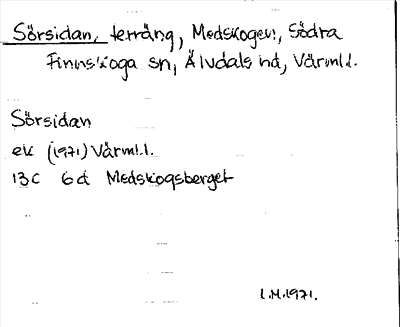 Sörsidan, terräng, Medskogen, Södra
Finnskoga sn, Älvdals hd, Värml.
Sörsidan
ek (1971) Värml.
13C 6d Medskogsberget
L.M.1971.